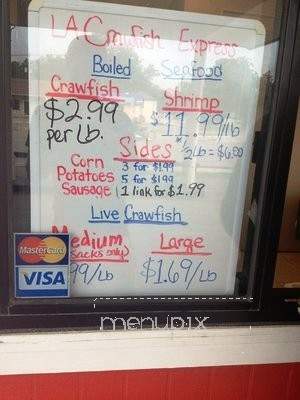 LA Crawfish Express
Boiled Seafood
Crawfish
$2.99
per Lb.
Shrimp
$11.99/lb
1/2 Lb = $6.00
Sides
Corn 3 for $1.99
Potatoes 5 for $1.99
Sausage 1 link for $1.99
Live Crawfish
Medium
(Sacks only)
99/Lb
Large
$1.69/Lb
MasterCard
VISA
menupix